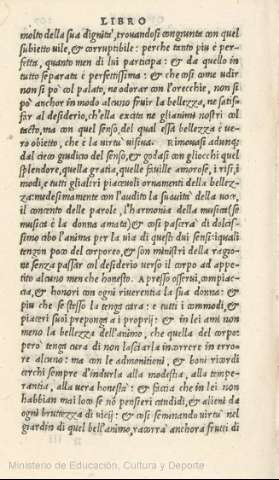 LIBRO
molto della sua dignita, trouandosi congiunta con quel
subietto uile, & corruttibile: perche tanto piu è per-
fetta, quanto men di lui participa: & da quello in
tutto separata è perfettissima: & che cosi come udir
non si po col palato, ne odorar con l'orecchie, non si
po anchor in modo alcuno fruir la bellezza, ne satisf-
far al desiderio, ch'ella excita ne gli animi nostri col
tacto, ma con quel senso, del qual essa bellezza è ue-
ro obietto, che è la uirtu uisiua. Rimouasi adunq;
dal cieco giudicio del senso, & godasi con gliocchi quel
splendore, quella gratia, quelle fauille amorose, i risi, i
modi, e tutti gli altri piaceuoli ornamenti della bellez-
za: medesimamente con l'audito la suauità della uoce,
il concento delle parole, l'harmonia della musica (se
musica è la donna amata) & cosi pascerà di dolcis-
simo cibo l'anima per la uia di questi dui sensi: i quali
tengon poco del corporeo, & son ministri della ragio-
ne senza passar col desiderio uerso il corpo ad appe-
tito alcuno men che honesto. Apresso osserui, compiac-
cia, & honori con ogni riuerentia la sua donna: &
piu che se stesso la tenga cara: e tutti i commodi, &
piaceri suoi preponga a i proprij: & in lei ami non
meno la bellezza dell'animo, che quella del corpo:
però tenga cura di non lasciarla incorrere in erro-
re alcuno: ma con le admonitioni, & boni ricordi
cerchi sempre d'indurla alla modestia, alla tempe-
rantia, alla uera honestà: & faccia che in lei non
habbian mai loco se nò pensieri candidi, & alieni da
ogni bruttezza di uicij: & cosi seminando uirtu nel
giardin di quel bell'animo, raccorrà anchora frutti di
Ministerio de Educación, Cultura y Deporte